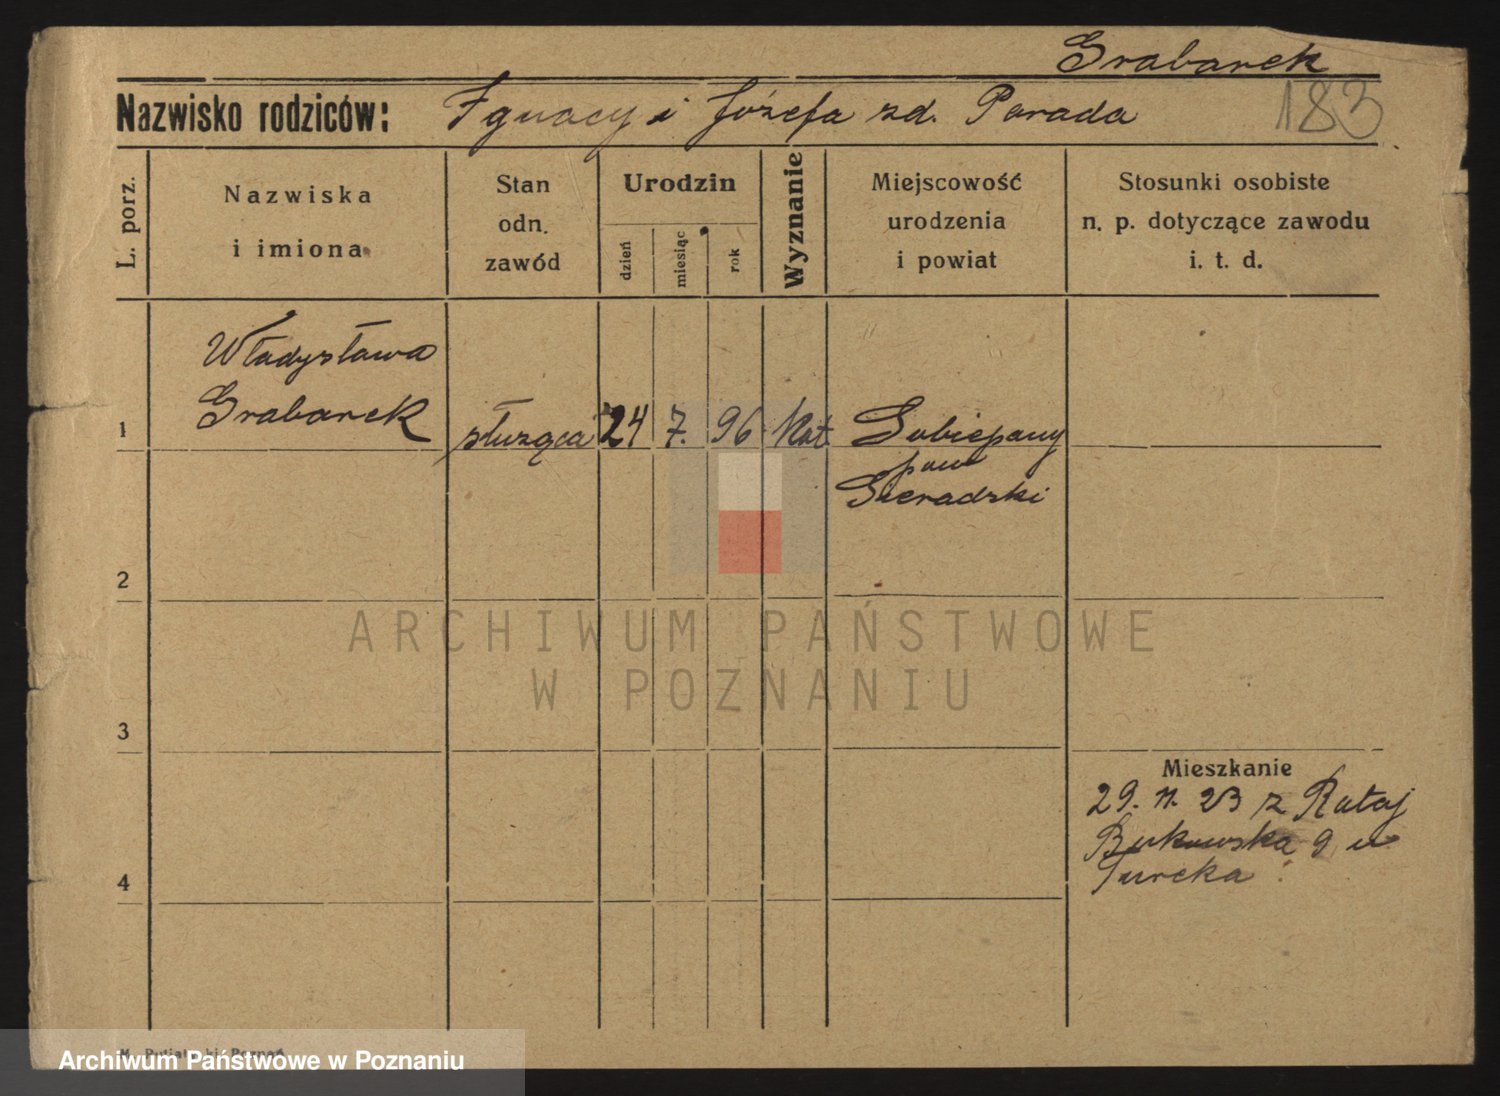 Grabarek
Nazwisko rodziców: Ignacy i Józefa zd. Parada
183
L. porz.
Nazwiska
i imiona
Stan
odn.
zawód
Urodzin
dzień
miesiąc
rok
Wyznanie
Miejscowość
urodzenia
i powiat
Stosunki osobiste
n. p. dotyczące zawodu
i. t. d.
Władysława
Grabarek
1
służąca 24 7. 96 Kat
pow
Sieradzki
2
ARCHIWUM PAŃSTWOWE
W POZNANIU
3
Mieszkanie
29. 11. 23 z Rataj
Bukowska 9 u
Turcka
4
Archiwum Państwowe w Poznaniu